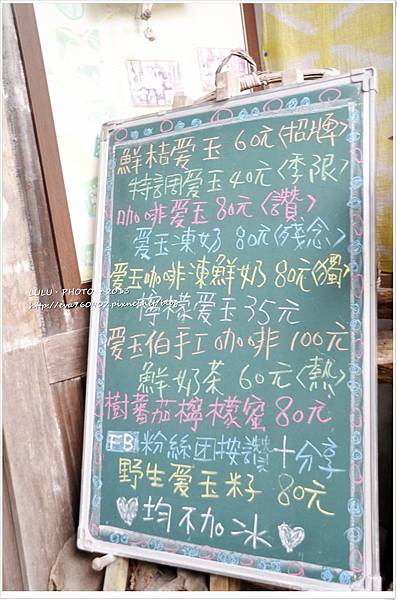 鮮桔愛玉 60元〈招牌〉
特調愛玉 40元〈季限〉
咖啡愛玉 80元〈讚〉
愛玉凍奶 80元〈殘念〉
愛玉咖啡凍鮮奶 80元〈獨〉
檸檬愛玉 35元
愛玉伯手工咖啡 100元
鮮奶茶 60元〈熱〉
樹番茄檸檬蜜 80元
FB粉絲团按讚十分享
野生愛玉籽 80元
均不加冰
LULU·PHOTO